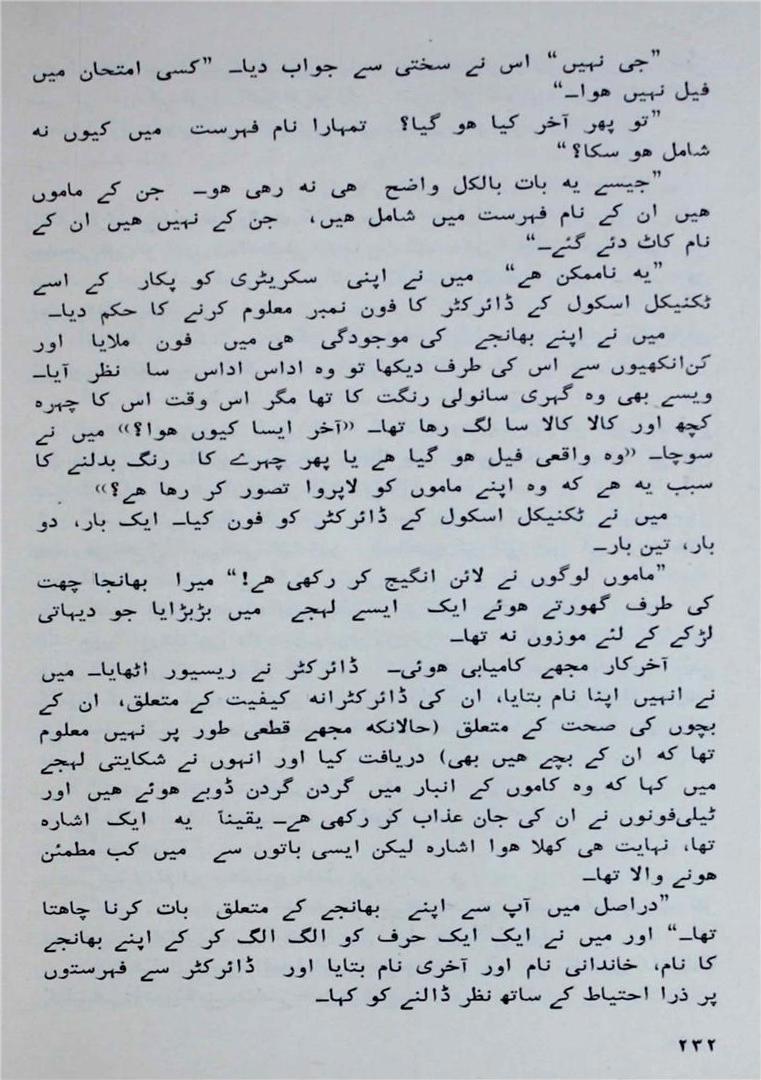 ”جی نہیں“ اس نے سختی سے جواب دیا۔ ”کسی امتحان میں
فیل نہیں ھوا۔“
”تو پھر آخر کیا ھو گیا؟ تمہارا نام فہرست میں کیوں نہ
شامل ھو سکا؟“
”جیسے یہ بات بالکل واضح ھی نہ رھی ھو۔ جن کے ماموں
ھیں ان کے نام فہرست میں شامل ھیں، جن کے نہیں ھیں ان کے
نام کاٹ دئے گئے۔“
”یہ ناممکن ھے“ میں نے اپنی سکریٹری کو پکار کے اسے
ٹکنیکل اسکول کے ڈائرکٹر کا فون نمبر معلوم کرنے کا حکم دیا۔
میں نے اپنے بھانجے کی موجودگی ھی میں فون ملایا اور
کن‌انکھیوں سے اس کی طرف دیکھا تو وہ اداس اداس سا نظر آیا۔
ویسے بھی وہ گہری سانولی رنگت کا تھا مگر اس وقت اس کا چہرہ
کچھ اور کالا کالا سا لگ رھا تھا۔ «آخر ایسا کیوں ھوا؟» میں نے
سوچا۔ «وہ واقعی فیل ھو گیا ھے یا پھر چہرے کا رنگ بدلنے کا
سبب یہ ھے کہ وہ اپنے ماموں کو لاپروا تصور کر رھا ھے؟»
میں نے ٹکنیکل اسکول کے ڈائرکٹر کو فون کیا۔ ایک بار، دو
بار، تین بار۔
”ماموں لوگوں نے لائن انگیج کر رکھی ھے!“ میرا بھانجا چھت
کی طرف گھورتے ھوئے ایک ایسے لہجے میں بڑبڑایا جو دیہاتی
لڑکے کے لئے موزوں نہ تھا۔
آخرکار مجھے کامیابی ھوئی۔ ڈائرکٹر نے ریسیور اٹھایا۔ میں
نے انہیں اپنا نام بتایا، ان کی ڈائرکٹرانہ کیفیت کے متعلق، ان کے
بچوں کی صحت کے متعلق (حالانکہ مجھے قطعی طور پر نہیں معلوم
تھا کہ ان کے بچے ھیں بھی) دریافت کیا اور انہوں نے شکایتی لہجے
میں کہا کہ وہ کاموں کے انبار میں گردن گردن ڈوبے ھوئے ھیں اور
ٹیلی‌فونوں نے ان کی جان عذاب کر رکھی ھے۔ یقیناً یہ ایک اشارہ
تھا، نہایت ھی کھلا ھوا اشارہ لیکن ایسی باتوں سے میں کب مطمئن
ھونے والا تھا۔
”دراصل میں آپ سے اپنے بھانجے کے متعلق بات کرنا چاھتا
تھا۔“ اور میں نے ایک ایک حرف کو الگ الگ کر کے اپنے بھانجے
کا نام، خاندانی نام اور آخری نام بتایا اور ڈائرکٹر سے فہرستوں
پر ذرا احتیاط کے ساتھ نظر ڈالنے کو کہا۔
۲۳۲